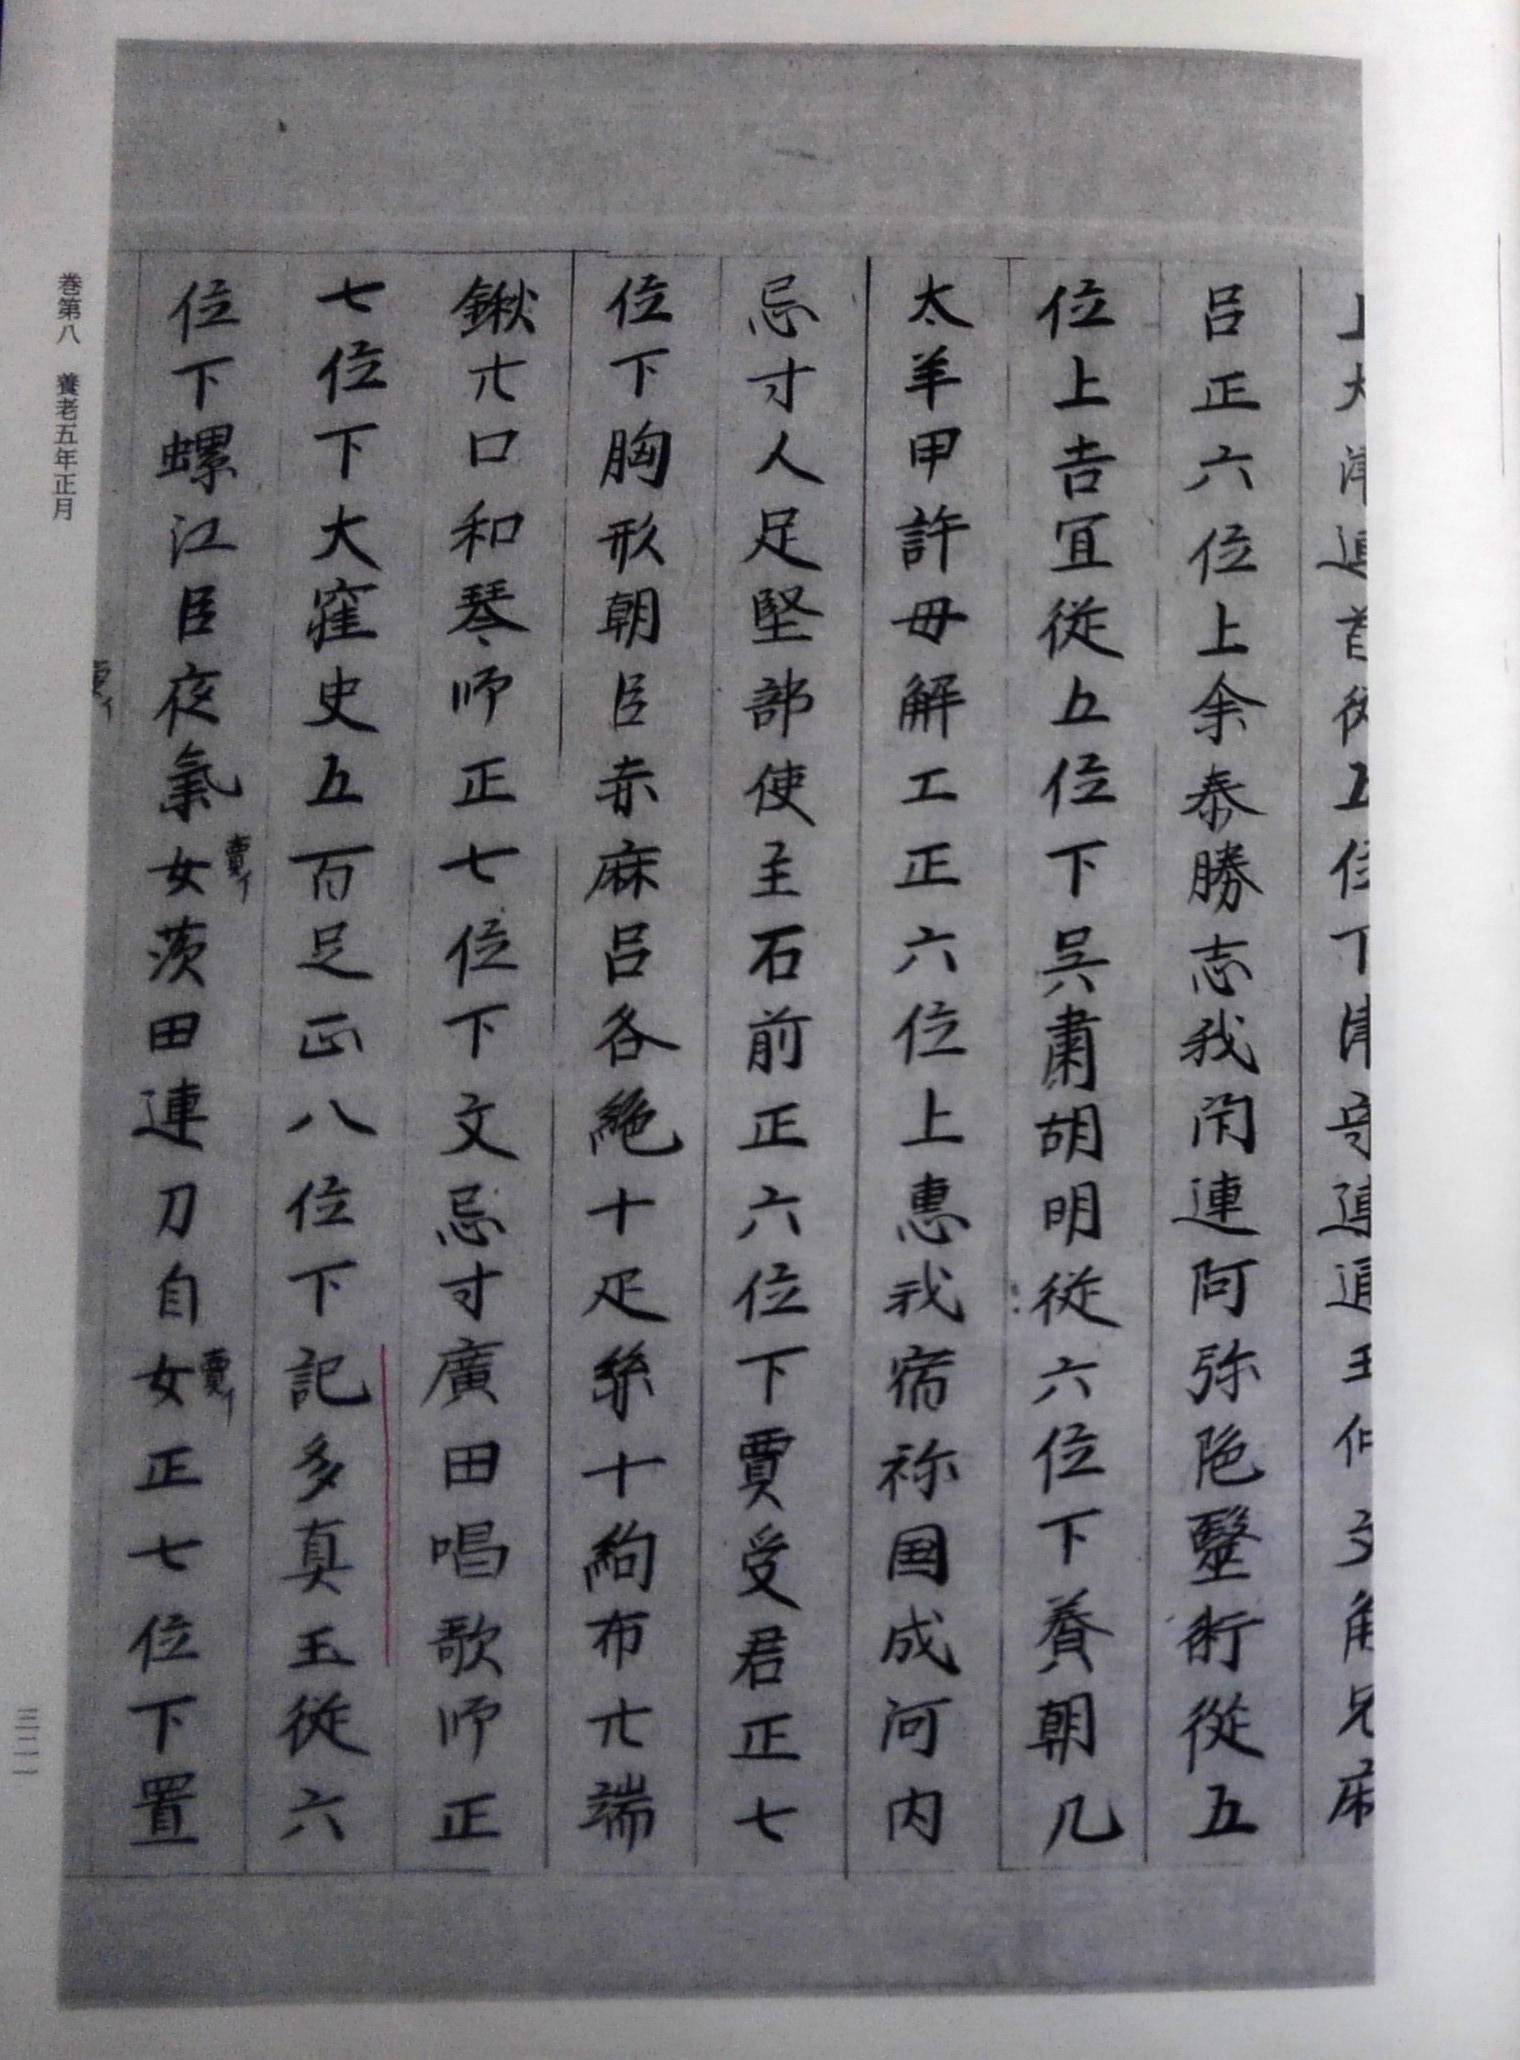 上大津連首從五位下津守連通王仲文角兄麻
呂正六位上余泰勝志我閇連阿弥陁毉術從五
位上吉宜從五位下呉肅胡明從六位下養朝几
太羊甲許母解工正六位上惠我宿祢国成河内
忌寸人足堅部使主石前正六位下賈受君正七
位下胸形朝臣赤麻呂各絁十疋絲十絇布廿端
鍬廿口和琴師正七位下文忌寸廣田唱歌師正
七位下大窪史五百足正八位下記多真玉從六
位下螺江臣夜氣女茨田連刀自女正七位下置
賣イ
賣イ
賣イ
巻第八 養老五年正月
三二一